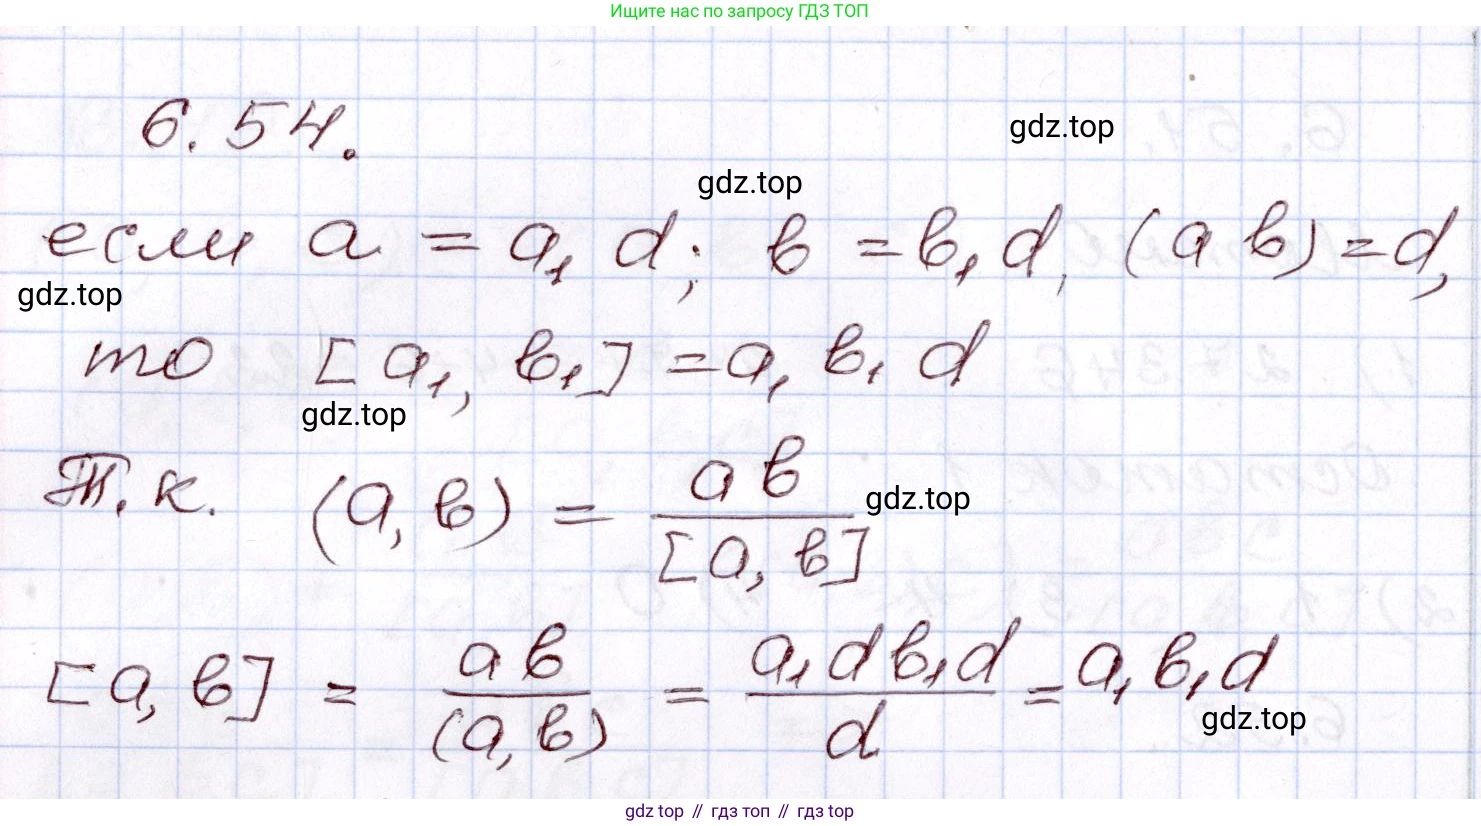 Ищите нас по запросу ГДЗ ТОП
6.54.
gdz.top
gdz.top
если a = a₁ d; b = b₁ d, (a b) = d,
gdz.top
то [a₁, b₁] = a₁ b₁ d
gdz.top
Т.к. (a, b) = ab / [a, b]
gdz.top
[a, b] = ab / (a, b) = a₁ d b₁ d / d = a₁ b₁ d
gdz.top
gdz top // гдз топ // гдз top